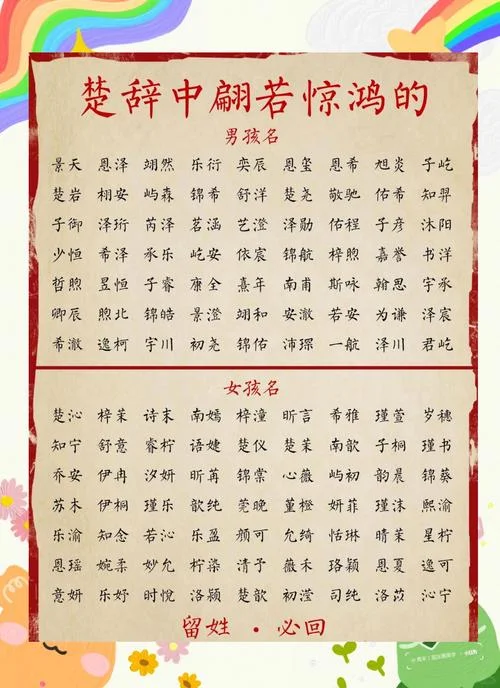 楚辞中翩若惊鸿的
男孩名
景天 恩泽 翊然 乐衍 奕辰 恩玺 恩希 旭炎 子屹
楚岩 栩安 屿森 锦希 舒洋 楚尧 敬驰 佑希 知羿
子御 泽珩 芮泽 茗涵 艺澄 泽勋 佑程 子彦 沐阳
少恒 希泽 承乐 屹安 依宸 锦航 梓煦 嘉誉 书洋
哲煦 昱恒 子睿 康全 熹年 南甫 斯咏 翰思 宇承
卿辰 煦北 锦皓 景澄 翊和 安澈 若安 为谦 泽宸
希澈 逸柯 宇川 初尧 锦佑 沛琛 一航 泽川 君屹
女孩名
楚沁 梓茉 诗末 南嫣 梓潼 昕言 希雅 瑾萱 岁穗
知宁 舒意 睿柠 语婕 楚仪 楚茉 南歆 子桐 瑾书
乔安 伊冉 汐妍 昕苒 锦棠 心薇 屿初 韵晨 锦葵
苏木 伊桐 瑾乐 歆纯 莞晚 堇橙 妍菲 瑾沫 熙渝
乐渝 知念 若沁 乐盈 颜可 允绮 恬琳 晴茉 星柠
恩瑶 婉柔 妙允 柠染 清予 薇禾 珞颖 恩夏 逸可
意妍 乐妤 时悦 洛颖 楚歆 初滢 司纯 洛苡 沁宁
留姓 · 必回